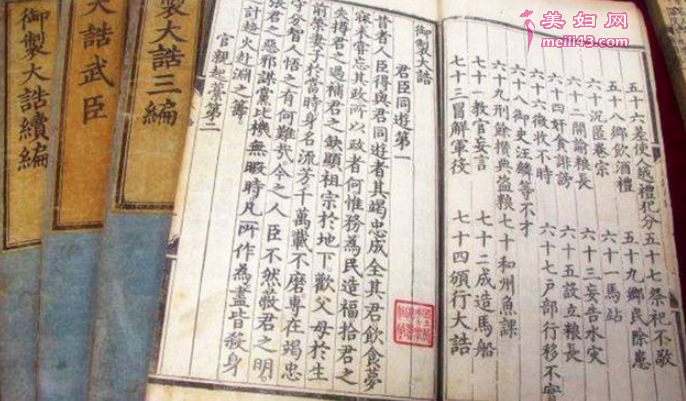 五十六差使人越禮犯分 五十七祭祀不敬
五十八鄉飲酒禮 五十九鄉民除患
六十沉匿卷宗 六十一馬站
六十二開諭糧長 六十三妄告水灾
六十四奸食誹謗 六十五設立粮長
六十六徵收不時 六十七戶部行移不實
六十八御史汪麟等不才
六十九刑餘攢典盜粮 七十和州魚課
七十一教官妄言 七十二成造馬船
七十三冒解軍役 七十四頒行大誥
御製大誥
君臣同遊第一
昔者人臣得與君同遊者其竭忠成全其君飲食夢
寐未嘗忘其政所以政者何惟務為民造福拾君之
失撙君之過補君之缺顯祖宗於地下歡父母於生
前榮妻子於當時身名流芳千萬載不磨專在竭忠
守分智人悟之有何難哉今之人臣不然蔽君之明
張君之惡邪謀黨比機無暇時凡所作為盡皆殺身
計趨火赴淵之籌
官親起藁第二
製大誥三編
大誥武臣
御製大誥續編
美妇网
meili43.com